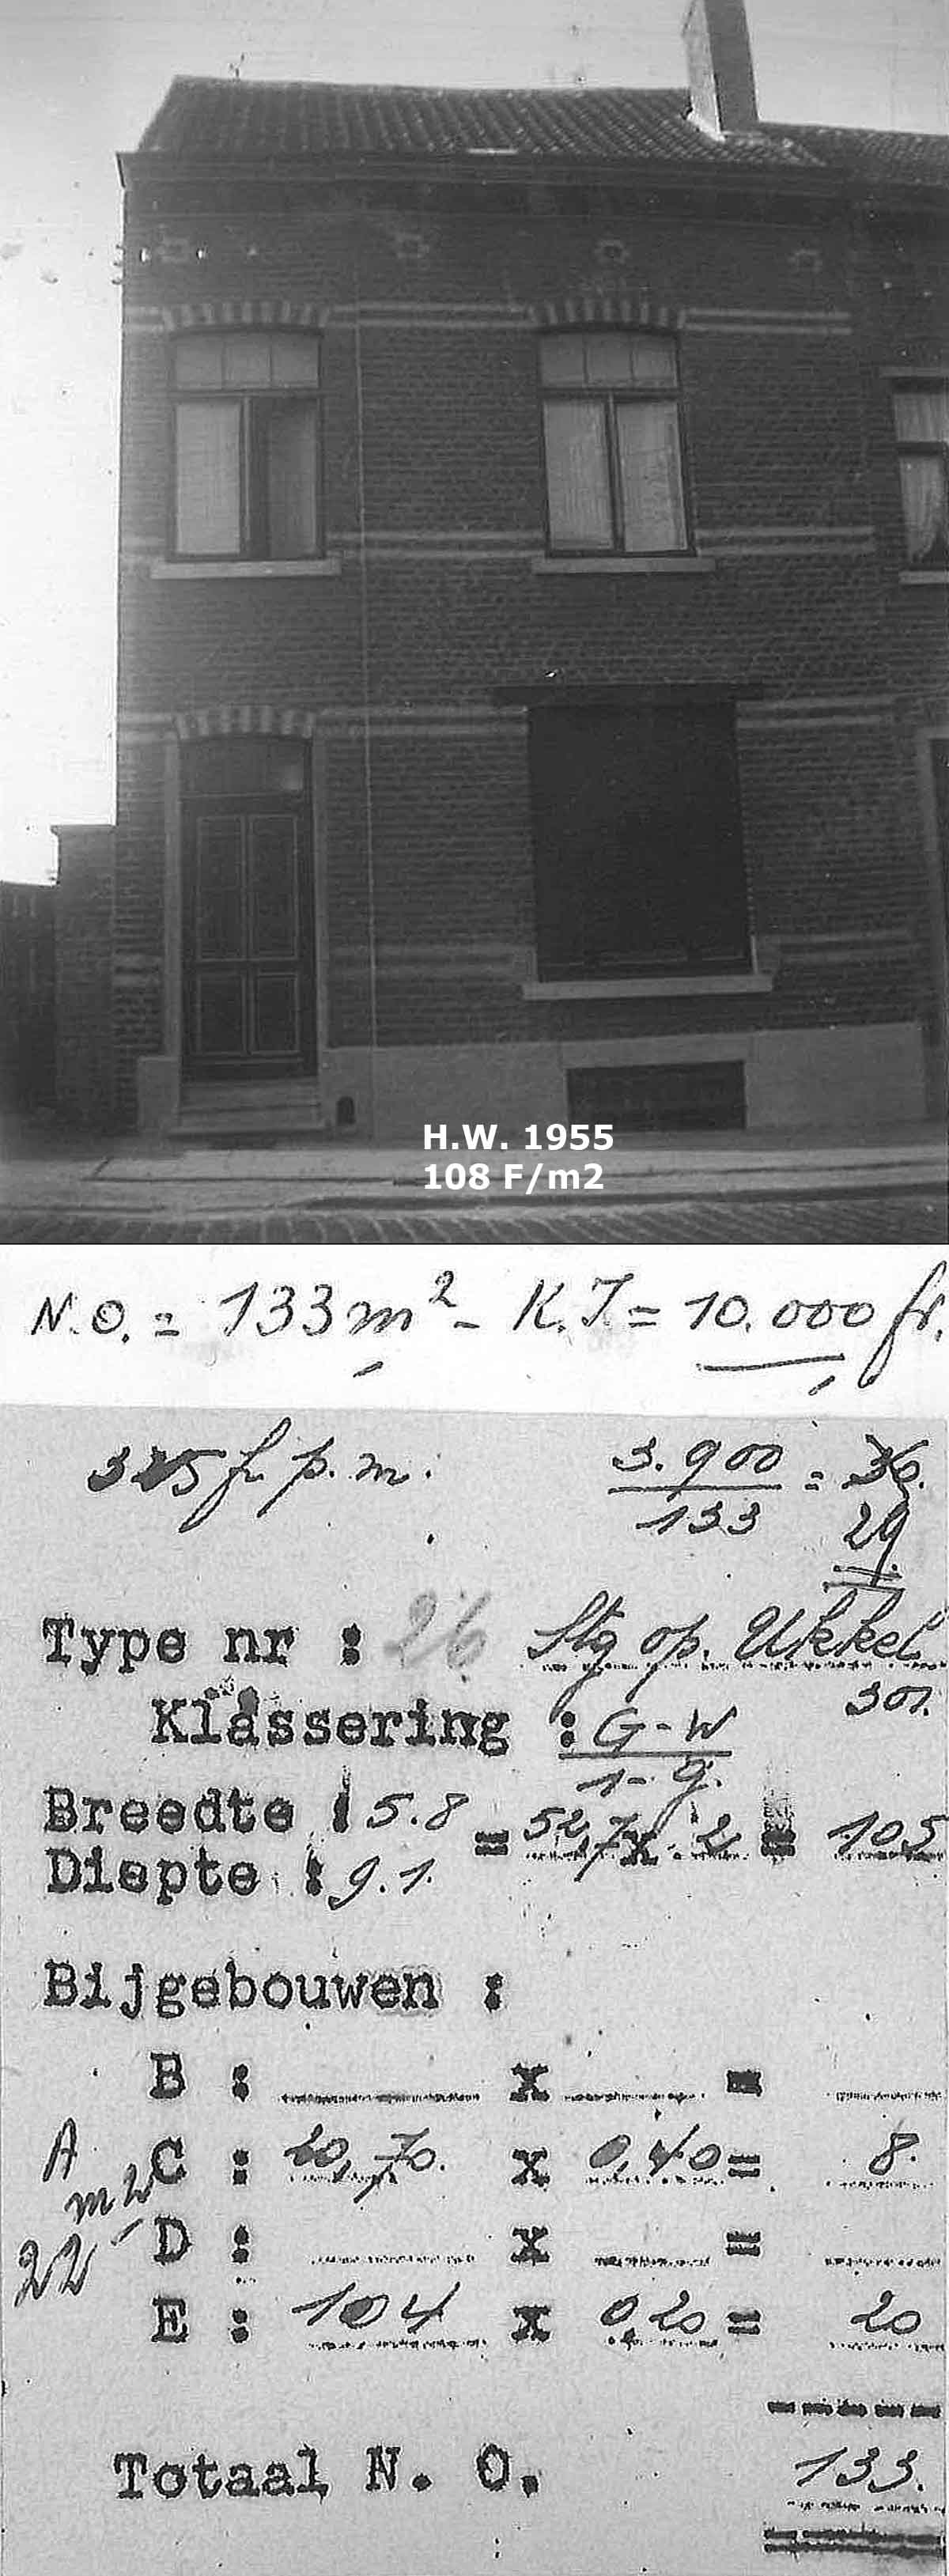 H.W. 1955
108 F/m2
N.O. = 133 m² - K.I. = 10.000 fr.
325 fr p. m. 3.900 = 36.
133 29
Type nr : 26 Stg op. Ukkel
301.
Klassering : G-W
1-g.
Breedte : 5.8 = 52,7 x 2 = 105
Diepte : 9.1.
Bijgebouwen :
B : x =
A C : 20,70. x 0,40 = 8.
m²
22 D : x =
E : 104 x 0,20 = 20
Totaal N. O. 133.